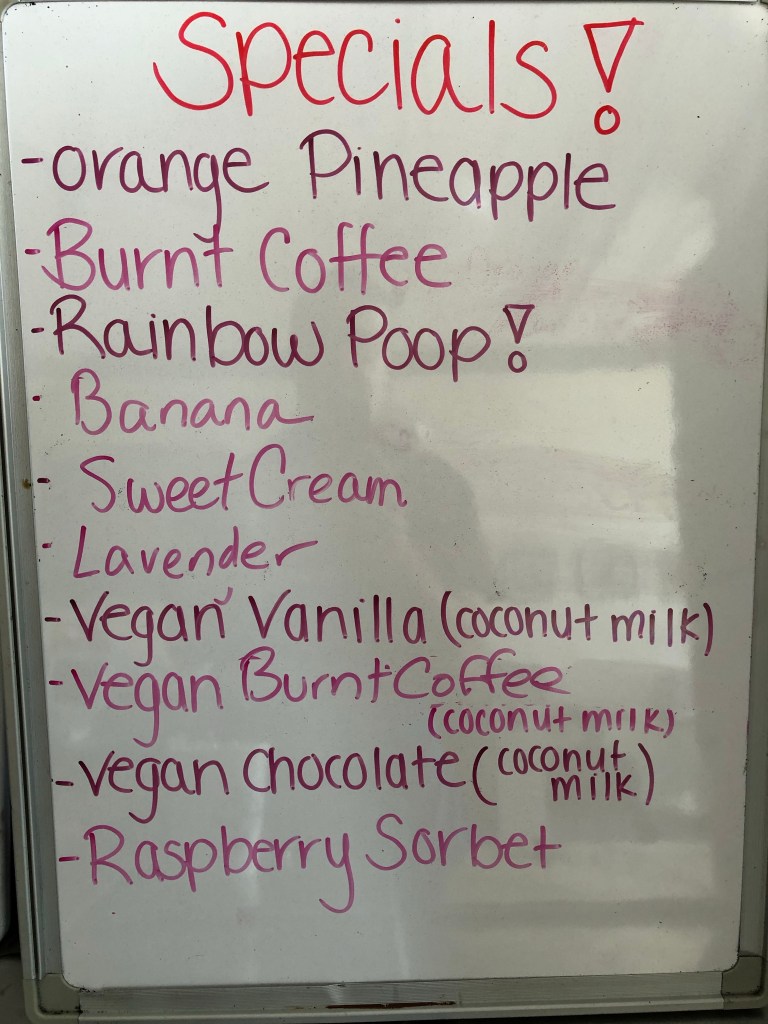 Specials!
-orange Pineapple
-Burnt Coffee
-Rainbow Poop!
- Banana
- Sweet Cream
- Lavender
-Vegan Vanilla (coconut milk)
-Vegan Burnt Coffee
(coconut milk)
-Vegan Chocolate (coconut
milk)
-Raspberry Sorbet